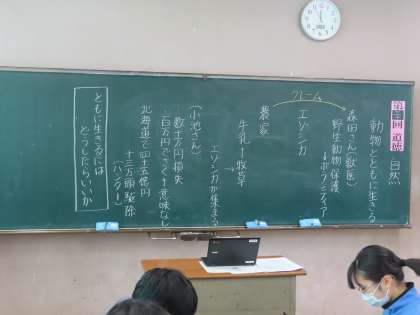 第　回 道徳
自然
動物とともに生きる
森田さん(獣医)
野生動物保護
→ボランティア
クレーム
エゾシカ
農家
牛乳 ― 牧草
エゾシカが集まる
(小池さん)
数十万円損失
百万円でさくも意味なし
北海道で四十五億円
十三万頭駆除
(ハンター)
ともに生きるには
どうしたらいいか